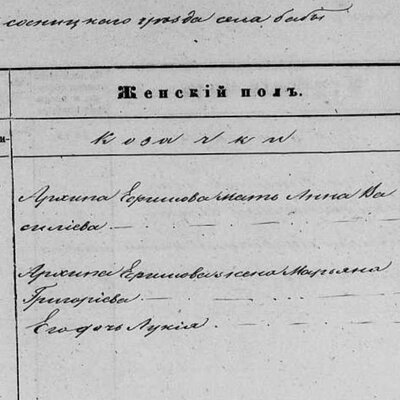 сосницкаго уѣзда села бабы
Женскій полъ.
козачки
Архипа Ефимова мать Анна Ва
силіева
Архипа Ефимова жена Марьяна
Григоріева
Его дочь Лукія